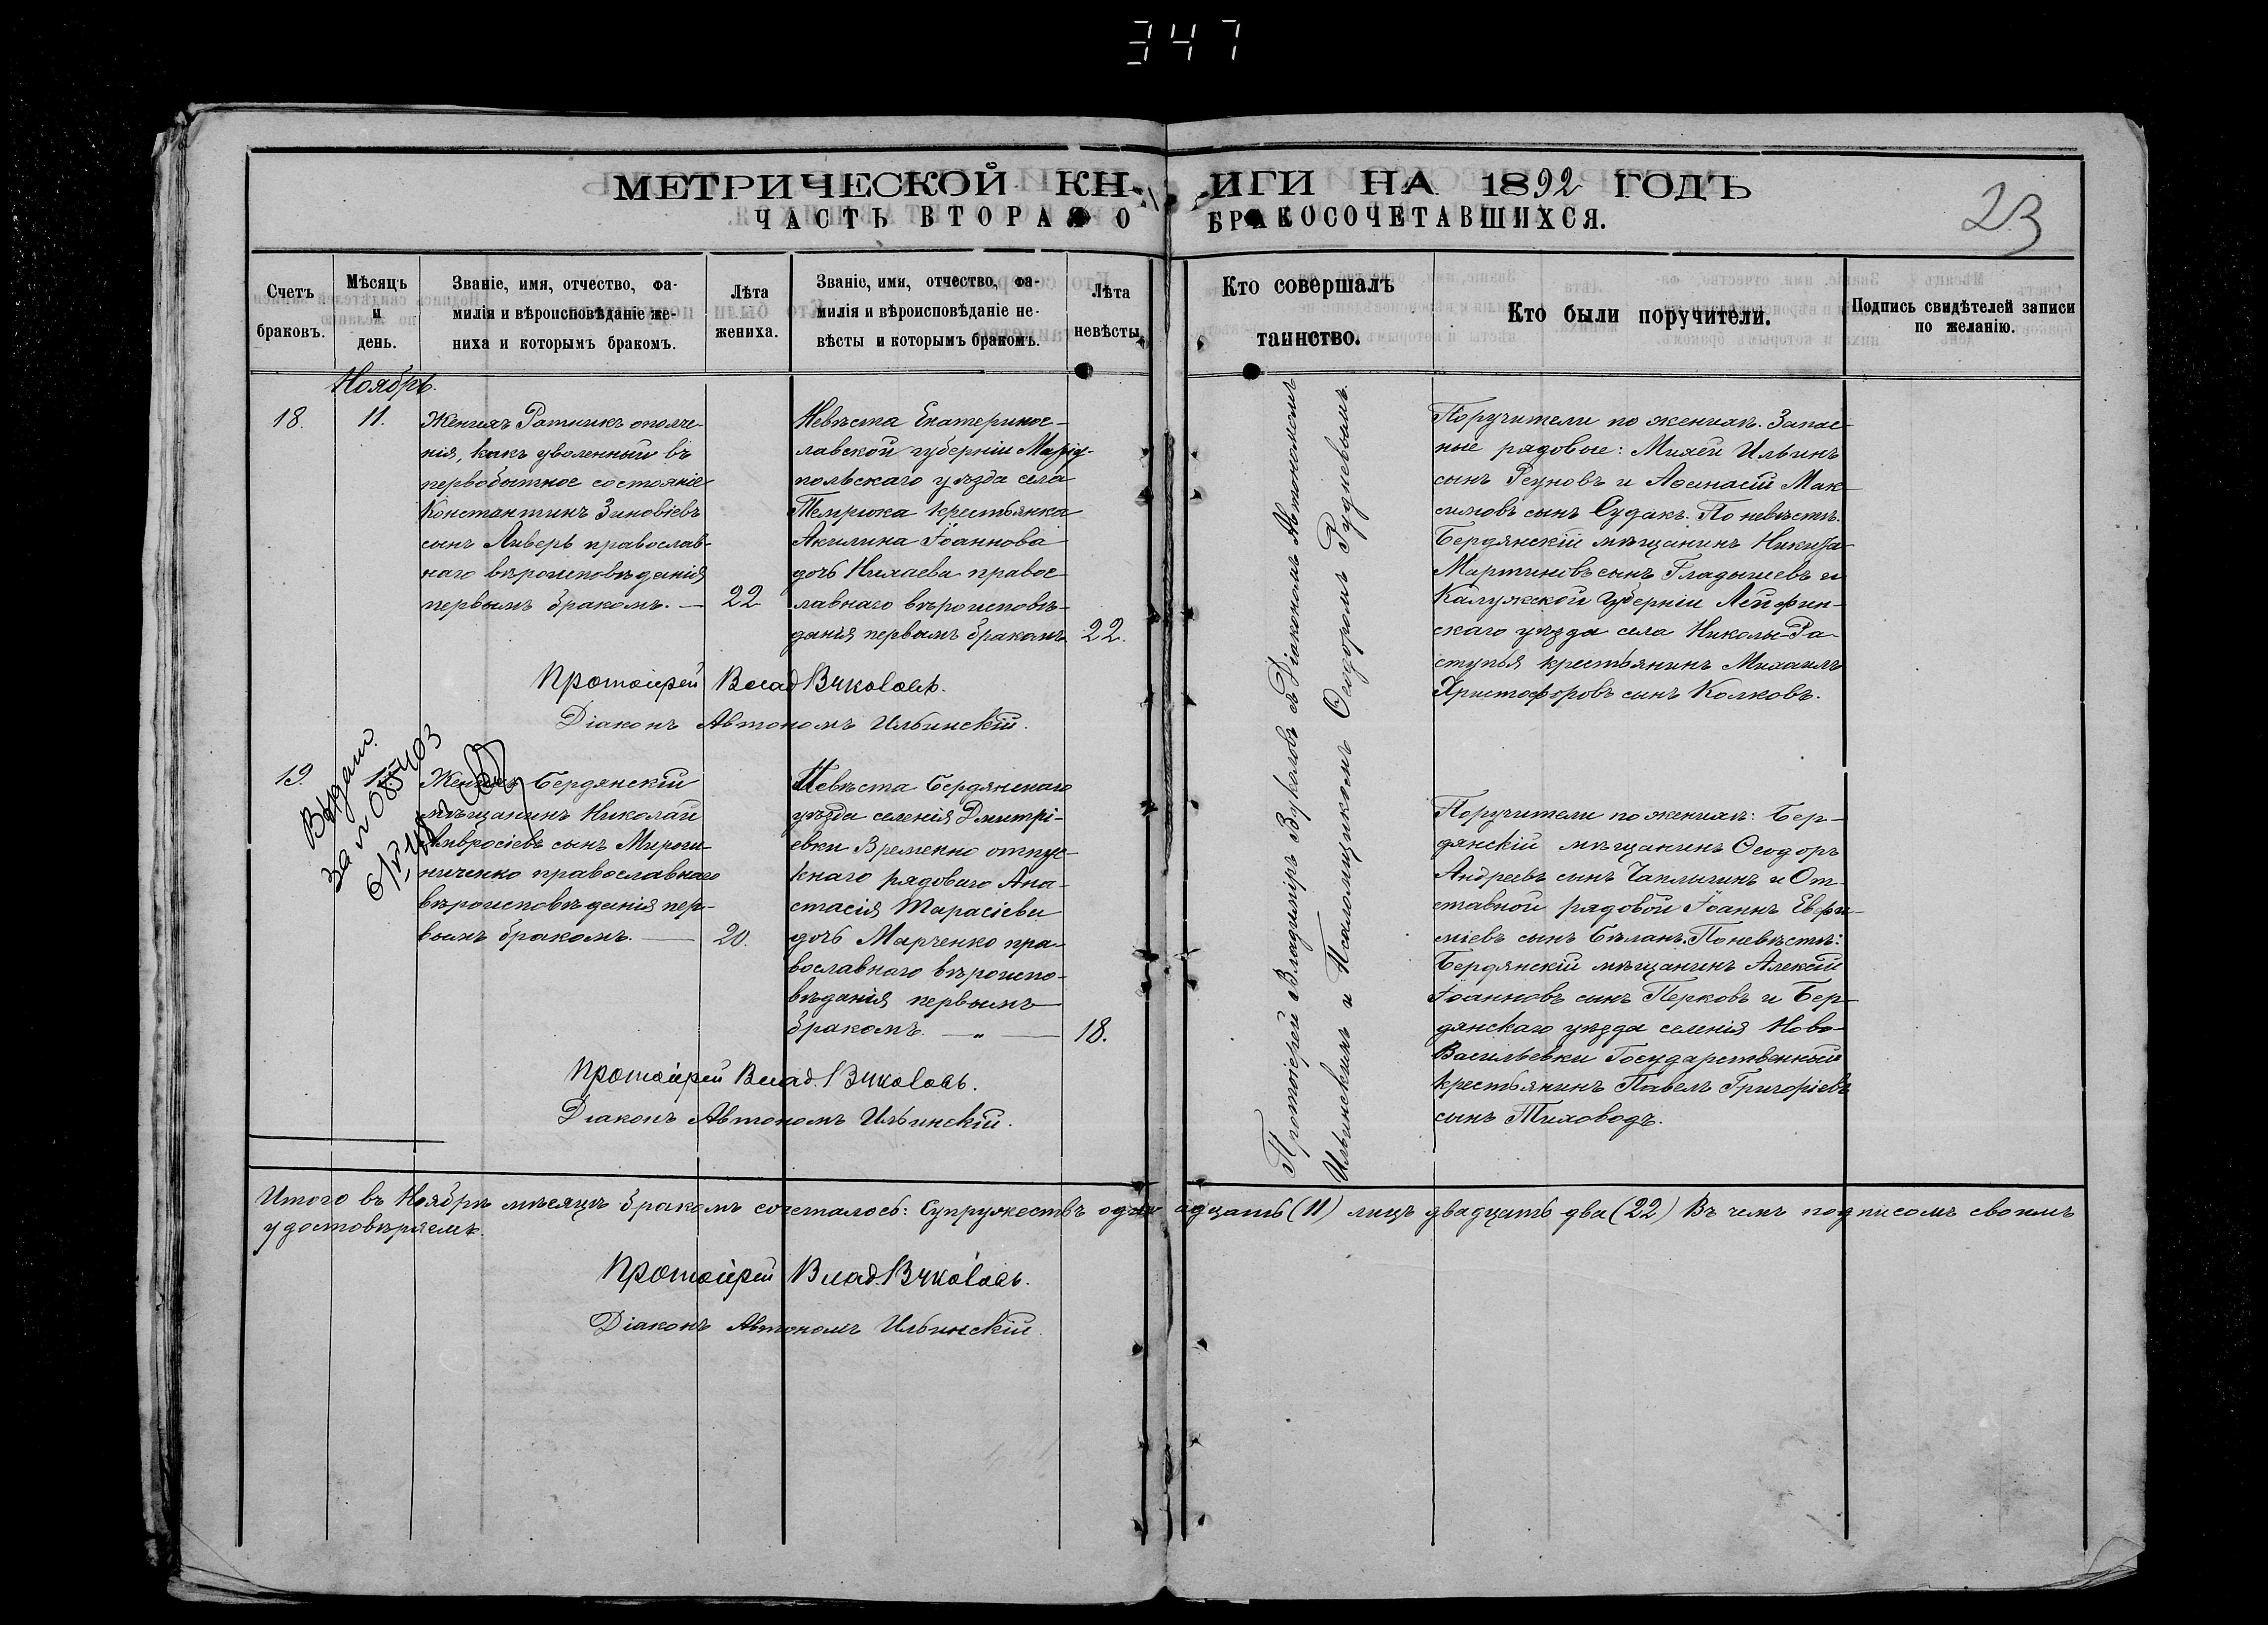 347
МЕТРИЧЕСКОЙ КНИГИ НА 1892 ГОДЪ
ЧАСТЬ ВТОРАЯ О БРАКОСОЧЕТАВШИХСЯ.
23
Счетъ
браковъ.
Мѣсяцъ
и
день.
Званіе, имя, отчество, фа-
милія и вѣроисповѣданіе же-
ниха и которымъ бракомъ.
Лѣта
жениха.
Званіе, имя, отчество, фа-
милія и вѣроисповѣданіе не-
вѣсты и которымъ бракомъ.
Лѣта
невѣсты.
Кто совершалъ
таинство.
Кто были поручители.
Подпись свидѣтелей записи
по желанію.
Ноябрь.
18.
11.
Женихъ Ратникъ ополче-
нія, какъ уволенный въ
первобытное состояніе
Константинъ Зиновіевъ
сынъ Ливерь православ-
наго вѣроисповѣданія
первымъ бракомъ. —
22
Невѣста Екатеринос-
лавской губерніи Маріу-
польскаго уѣзда села
Темрюка крестьянка
Акилина Іоаннова
дочь Нихаева правос-
лавнаго вѣроисповѣ-
данія первымъ бракомъ.
22.
Протоіерей Влад. Вукаловъ.
Діаконъ Автономъ Ильинскій.
Протоіерей Владиміръ Вукаловъ съ Діакономъ Автономомъ
Ильинскимъ и Псаломщикомъ Ѳеодоромъ Рудневымъ.
Поручители по женихѣ. Запас-
ные рядовые: Михей Ильинъ
сынъ Реуновъ и Аѳанасій Мак-
симовъ сынъ Судакъ. По невѣстѣ.
Бердянскій мѣщанинъ Никита
Мартиновъ сынъ Гладышевъ и
Калужской Губерніи
скаго уѣзда села Николы-Ра-
ступья крестьянинъ Михаилъ
Христофоровъ сынъ Колковъ.
Выдано
за № 085403
19.
Женихъ Бердянскій
мѣщанинъ Николай
Амвросіевъ сынъ Мирош-
ниченко православнаго
вѣроисповѣданія пер-
вымъ бракомъ. —
20.
Невѣста Бердянскаго
уѣзда селенія Дмитрі-
евки Временно отпус-
кнаго рядоваго Ана-
стасія Тарасіева
дочь Марченко пра-
вославнаго вѣроиспо-
вѣданія первымъ
бракомъ. — „ —
18.
Протоіерей Влад. Вукаловъ.
Діаконъ Автономъ Ильинскій.
Поручители по женихѣ: Бер-
дянскій мѣщанинъ Ѳеодоръ
Андреевъ сынъ Чаплыгинъ и От-
ставной рядовой Іоаннъ Евфи-
міевъ сынъ Бѣланъ. По невѣстѣ:
Бердянскій мѣщанинъ Алексій
Іоанновъ сынъ Перковъ и Бер-
дянскаго уѣзда селенія Ново-
Васильевки Государственный
крестьянинъ Павелъ Григоріевъ
сынъ Тиховодъ.
Итого въ Ноябрѣ мѣсяцѣ бракомъ сочеталось: Супружествъ одиннадцать (11) лицъ двадцать два (22) Въ чемъ подписомъ своимъ
удостовѣряемъ.
Протоіерей Влад. Вукаловъ.
Діаконъ Автономъ Ильинскій.